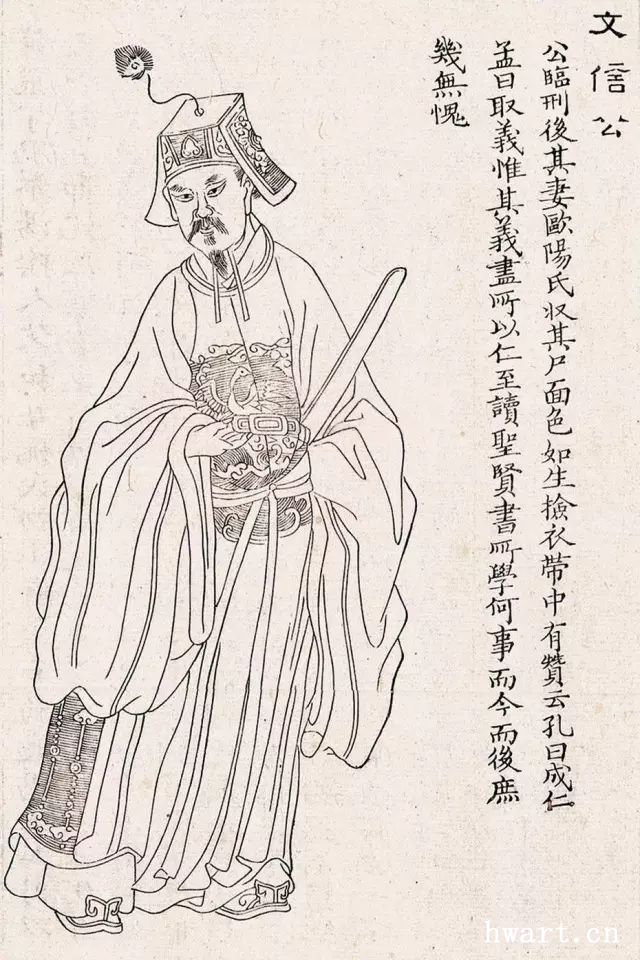 文信公
公臨刑後其妻歐陽氏收其尸面色如生撿衣帶中有贊云孔曰成仁
孟曰取義惟其義盡所以仁至讀聖賢書所學何事而今而後庶
幾無愧
hwart.cn